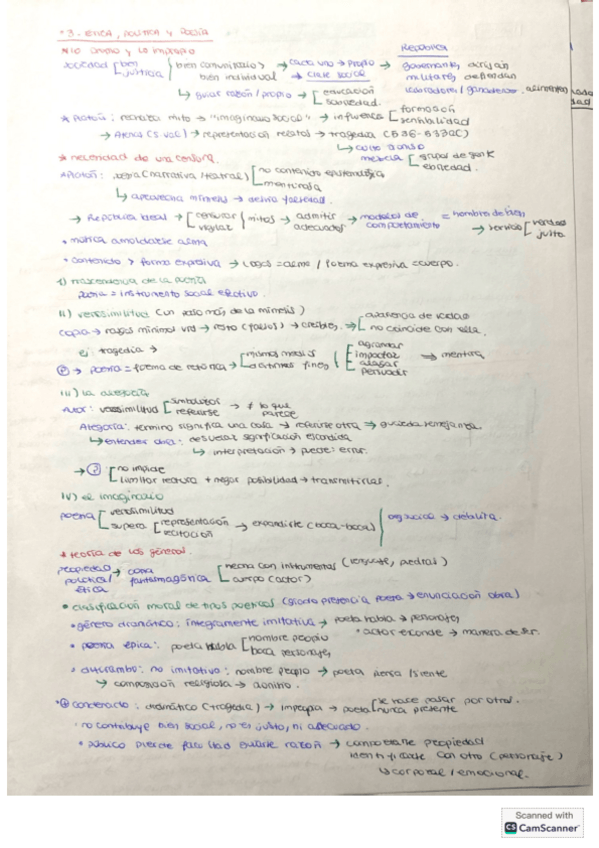 3. ÉTICA, POLÍTICA Y POESÍA
lo propio y lo impropio
sociedad bien justicia bien comunitario → cada uno → propio
bien individual clase social
República
gobernantes, dirijan
militares, defiendan
labradores/ganaderos, alimenten
↳ guiar razón/propio → educación
sociedad.
* Platón: rechaza mito → "imaginario social" → influencia formación
sensibilidad
→ Atenas (s. V aC) → representación relatos → tragedia (536-533aC)
↳ culto dioniso
mezcla grupos de gente
ebriedad.
* necesidad de una censura.
Platón: poesía (narrativa/teatral) no contenido epistemológico
mentirosa
↳ aprovecha mímesis → desvía falsedad.
→ República Ideal → censurar vigilar mitos → admitir adecuados → modelos de comportamiento = hombre de bien
→ servicio verdad
justa
• música amoldarse alma
• contenido > forma expresiva → Logos = alma / forma expresiva = cuerpo.
I) trascendencia de la poesía
poesía = instrumento social efectivo.
II) verosimilitud (un paso más de la mímesis)
copia → rasgos mínimos → resto (falsos) → creíbles, ⇒ apariencia de verdad
no coincide con ella.
ej: tragedia →
P → poesía = forma de retórica → mismos medios
distintos fines agradar
impactar
halagar
persuadir ⇒ mentira
III) la alegoría
Autor: verosimilitud simbolizar
referirse → ≠ lo que parece
Alegoría: término significa una cosa → referirse otra ⇒ guarda semejanza.
↳ entender obra: desvelar significación escondida
↳ interpretación → puede: errar.
→ P no impide
limitar lectura + mejor posibilidad → transmitirlas.
IV) el imaginario
poema verosimilitud
supera representación
recitación → expandirse (boca-boca)
* teoría de los géneros.
propiedad política/ética → copia fantasmagórica hecha con instrumentos (lenguaje, piedras)
cuerpo (actor)
• clasificación moral de tipos poéticos (grado presencia poeta → enunciación obra)
• género dramático: íntegramente imitativa → poeta habla → personajes
• actor esconde → manera de ser.
• poema épica: poeta habla nombre propio
boca personajes
• ditirambo: no imitativo: nombre propio → poeta piensa/siente
↳ composición religiosa → dionisio.
• P condenado: dramático (tragedia) → impropia → poeta se hace pasar por otros.
nunca presente
• no contribuye bien social, no es justo, ni adecuado.
• público pierde facultad guiarse razón → comportarse propiedad
identificarse con otro (personaje)
↳ corporal/emocional.
Scanned with
CS CamScanner